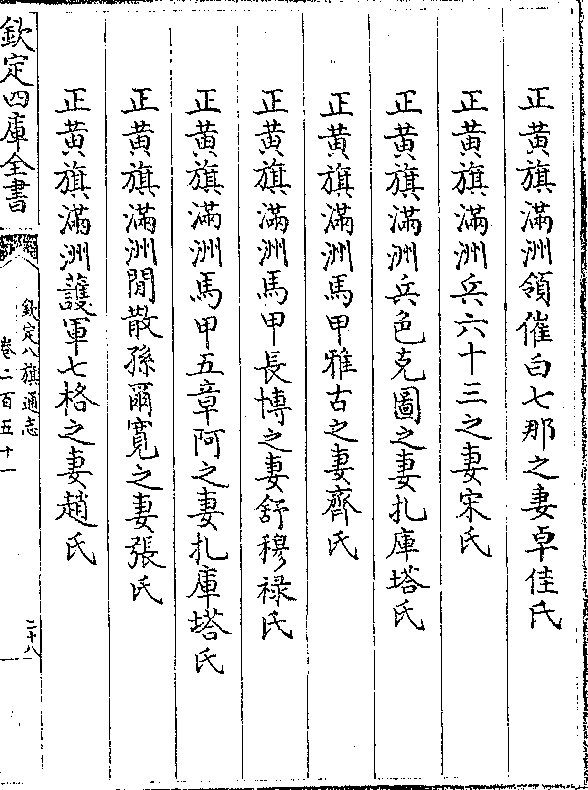 正黄旗滿洲領催白七那之妻卓佳氏
正黄旗滿洲兵六十三之妻宋氏
正黄旗滿洲兵色克圖之妻扎庫塔氏
正黄旗滿洲馬甲雅古之妻齊氏
正黄旗滿洲馬甲長博之妻舒穆禄氏
正黄旗滿洲馬甲五章阿之妻扎庫塔氏
正黄旗滿洲閒散孫爾寛之妻張氏
正黄旗滿洲護軍七格之妻趙氏
欽定四庫全書
欽定八旗通志
卷二百五十一
二十八